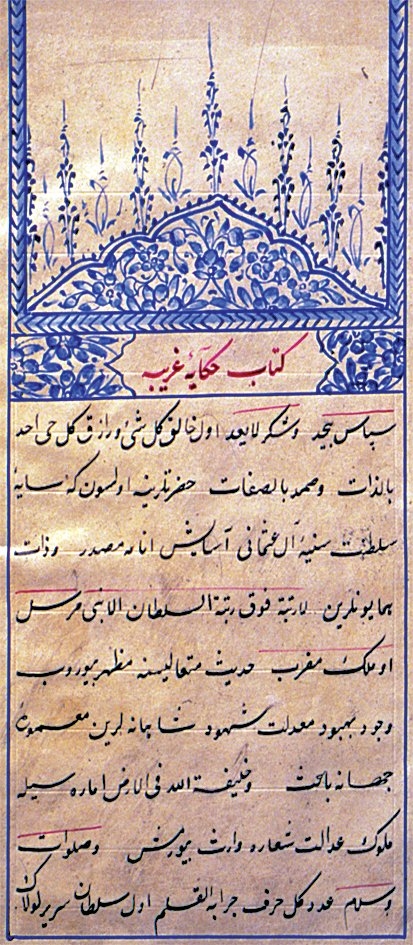 كتاب حكايهٔ غريبه
سپاس بيحد وشكر لايعد اول خالق كل شئ ورازق كل حی احد
بالذات وصمد بالصفات حضرتلرينه اولسون كه سايهٔ
سلطنت سنيهٔ آل عثمانی آسايش انامه مصدر وذات
همايونلرين لارتبة فوق رتبة السلطان الا نبی مرسل
او ملك مقرب حديث متعاليسنه مظهر بيوروب
وجود بهبود معدلت شهود شاهانه لرين معمورهٔ
جهانه باعث وخليفة الله فی الارض اماره سيله
ملوك عدالت شعاره وارث بيورمش وصلوات
وسلام عدد كل حرف جرا به القلم اول سلطان سرير لولاك